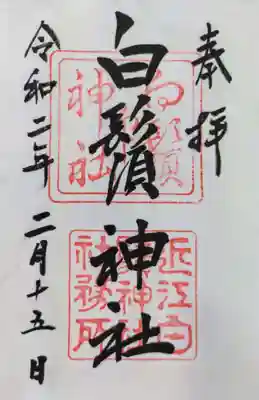 奉拝
白鬚神社
令和二年 二月十五日
白鬚神社
近江白鬚神社社務所